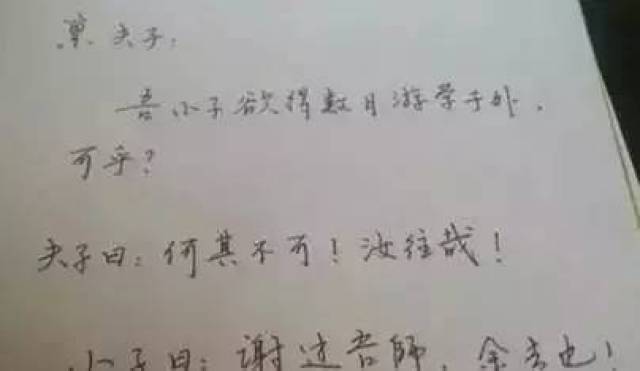 禀夫子：
吾小子欲择数日游学于外，
可乎？
夫子曰：何其不可！汝往哉！
小子曰：谢过吾師，余去也！